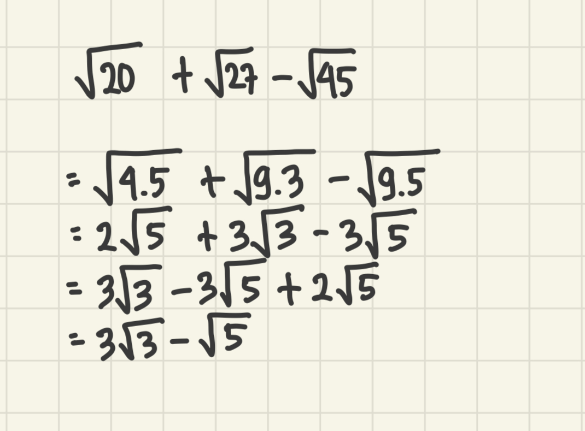 √20 + √27 − √45
= √4.5 + √9.3 − √9.5
= 2√5 + 3√3 − 3√5
= 3√3 − 3√5 + 2√5
= 3√3 − √5